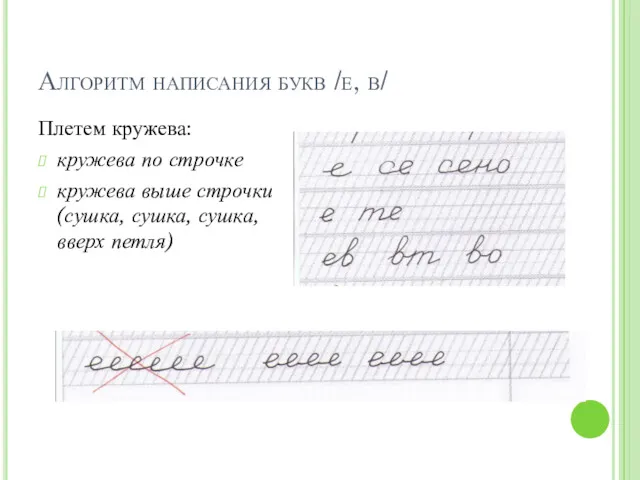 Алгоритм написания букв /е, в/
Плетем кружева:
кружева по строчке
кружева выше строчки
(сушка, сушка, сушка,
вверх петля)
е се сено
е те
ев вт во
ееееее ееее ееее